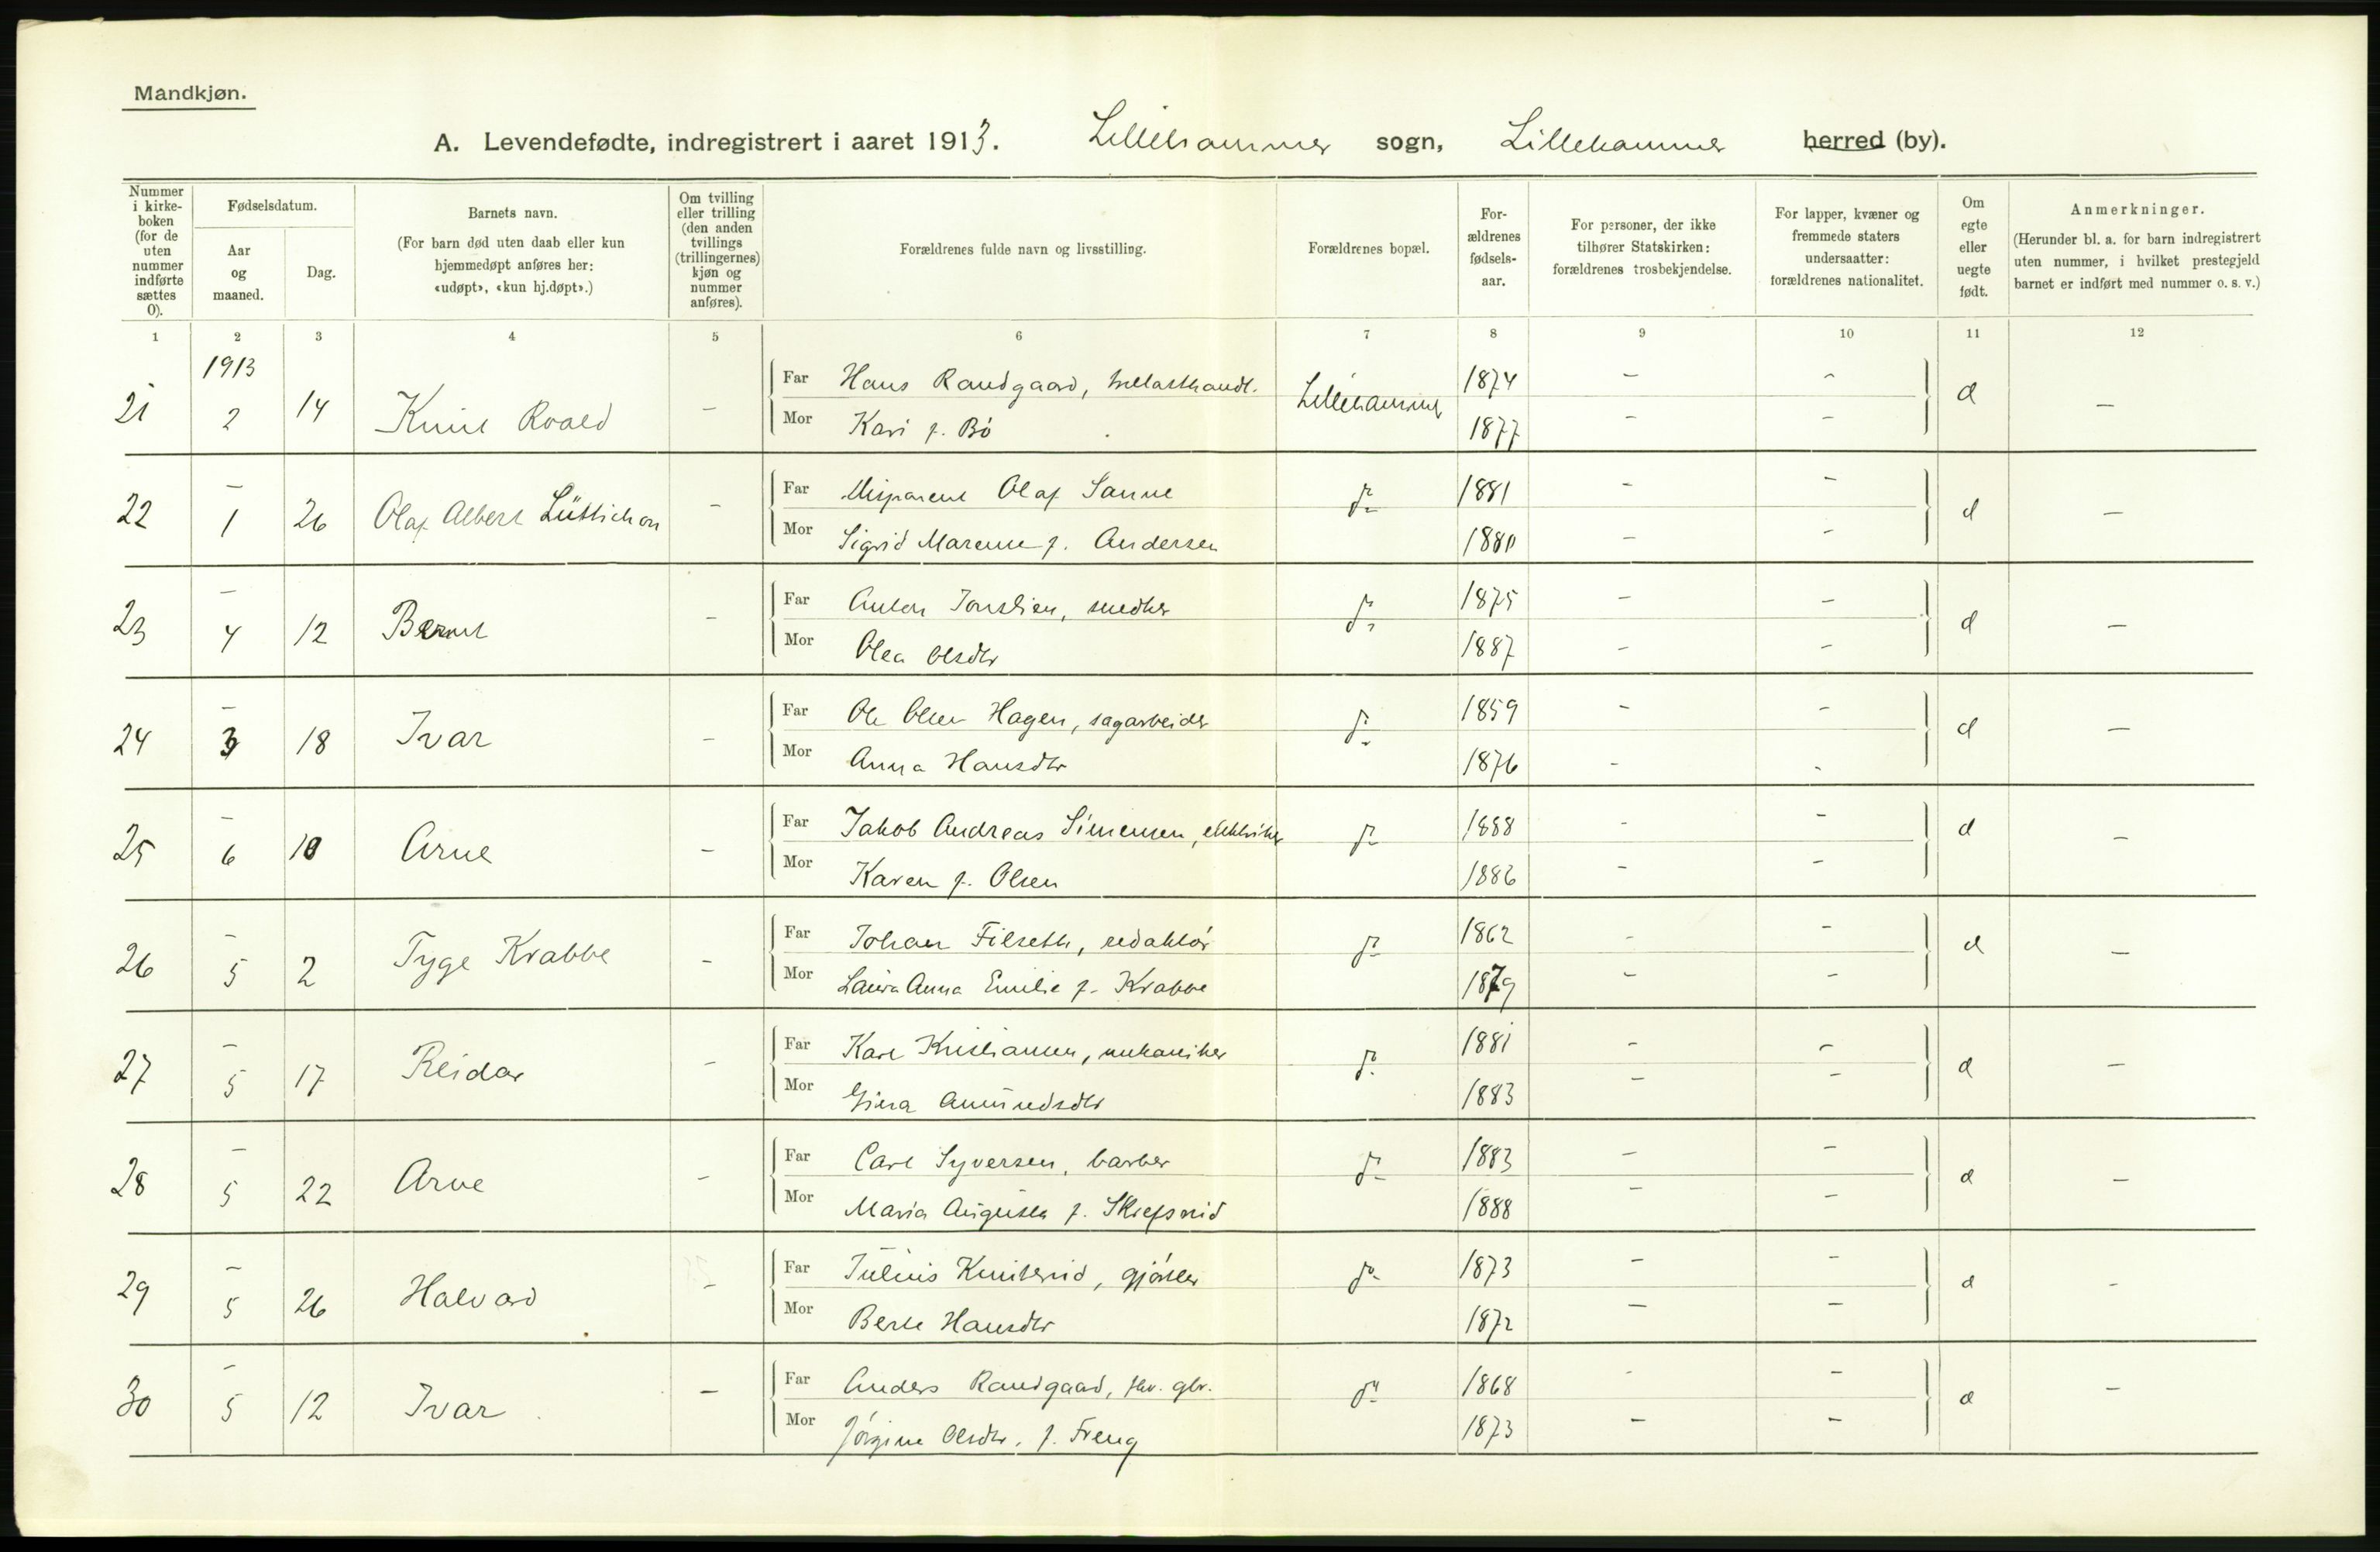 Mandkjøn.
A. Levendefødte, indregistrert i aaret 1913. Lillehammer sogn, Lillehammer herred (by).
Nummer i kirke-boken (for de uten nummer indførte sættes 0).
Fødselsdatum.
Aar og maaned.
Dag.
Barnets navn.
(For barn død uten daab eller kun hjemmedøpt anføres her: «udøpt», «kun hj.døpt».)
Om tvilling eller trilling (den anden tvillings (trillingernes) kjøn og nummer anføres).
Forældrenes fulde navn og livsstilling.
Forældrenes bopæl.
For-ældrenes fødsels-aar.
For personer, der ikke tilhører Statskirken: forældrenes trosbekjendelse.
For lapper, kvæner og fremmede staters undersaatter: forældrenes nationalitet.
Om egte eller uegte født.
Anmerkninger.
(Herunder bl. a. for barn indregistrert uten nummer, i hvilket prestegjeld barnet er indført med nummer o. s. v.)
1 2 3 4 5 6 7 8 9 10 11 12
1913
21 2 14 Knut Roald - Far Hans Randgaard, Lillehammer 1874 - - -
Mor Kari f. Bö 1877 - -
22 - 1 26 Olaf Albert Lüttichau - Far Olaf Sanne do 1881 - - -
Mor Sigrid Marenue f. Andersen 1880 - -
23 - 4 12 Bernt - Far Anton Jonslien, snedker do 1875 - - -
Mor Olea Olsdtr 1887 - -
24 - 3 18 Ivar - Far Ole Olsen Hagen, sagarbeider do 1859 - - -
Mor Anna Hansdtr 1876 - -
25 - 6 10 Arne - Far Jakob Andreas Simensen, elektriker do 1888 - - -
Mor Karen f. Olsen 1886 - -
26 - 5 2 Tyge Krabbe - Far Johan Filseth, redaktör do 1862 - - -
Mor Laura Anna Emilie f. Krabbe 1879 - -
27 - 5 17 Reidar - Far Karl Kristiansen, mekaniker do 1881 - - -
Mor Gina Amundsdtr 1883 - -
28 - 5 22 Arne - Far Carl Syversen, barber do 1883 - - -
Mor Maria Augusta f. 1888 - -
29 - 5 26 Halvard - Far Julius Knutsrud, gjörtler do 1873 - - -
Mor Berte Hansdtr 1872 - -
30 - 5 12 Ivar - Far Anders Randgaard, do 1868 - - -
Mor Jörgine Olsdtr. f. Freng 1873 - -